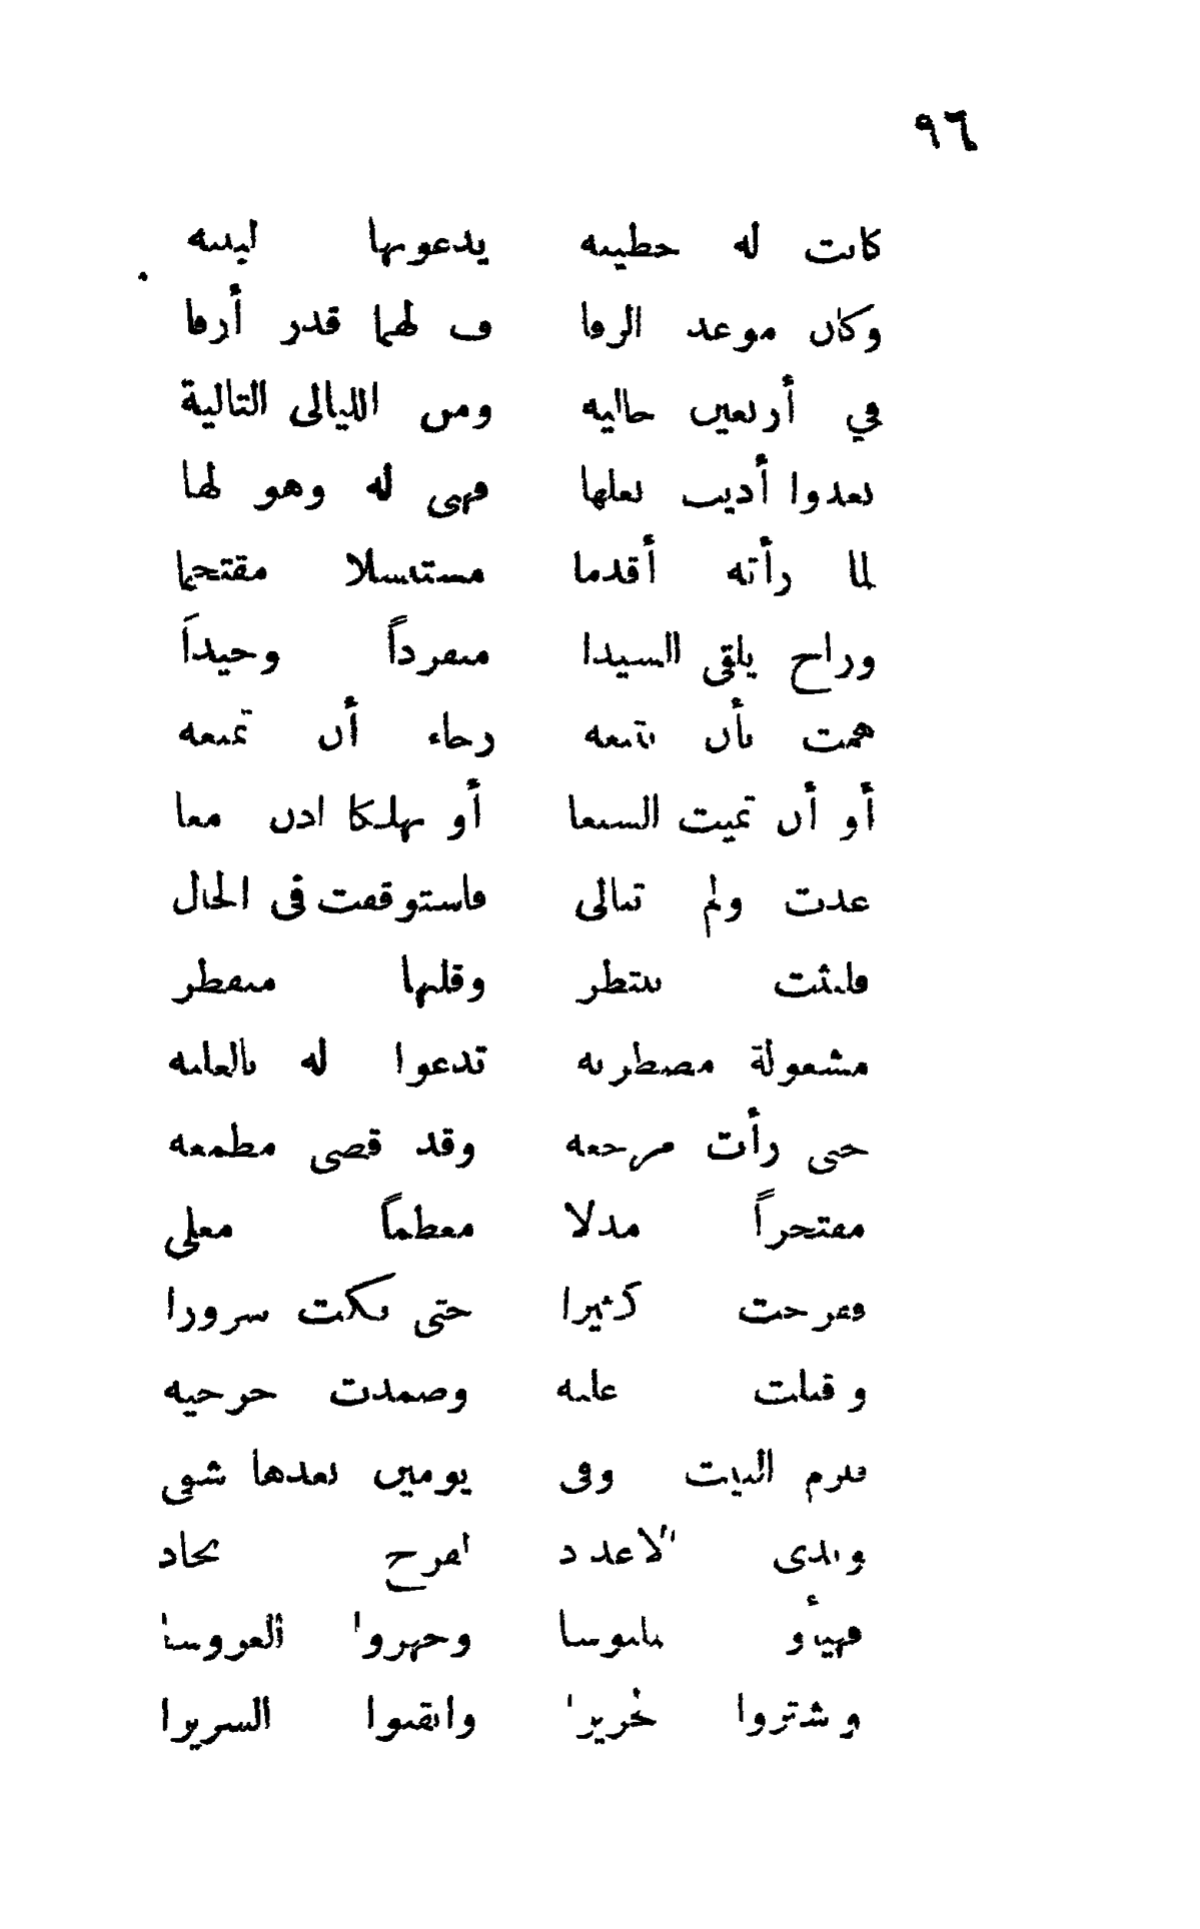 ٩٦
كانت له خطيبه يدعونها لبيبه
وكان موعد الزفا ف لهما قدر أزفا
في أربعين خاليه ومن الليالى التالية
بعدوا أديب بعلها فهى له وهو لها
لما رأته أقدما مستبسلا مقتحما
وراح يلقى السيدا منفرداً وحيداً
همت بأن تتبعه رجاء أن تمنعه
أو أن تميت السبعا أو يهلكا اذن معا
عدت ولم تبالى فاستوقفت فى الحال
فلبثت تنتظر وقلبها منفطر
مشغولة مضطربه تدعوا له بالغلبه
حتى رأت مرجعه وقد قضى مطمعه
مفتخراً مدلا معظماً معلى
ففرحت كثيرا حتى بكت سرورا
وقبلت عليه وضمدت جرحيه
فلزم البيت وفى يومين بعدها شفى
وابدى الاعداد لفرح يحاد
فهيأو ملبوسا وجهزوا العروسا
وشتروا خريرا وانقبوا السريرا